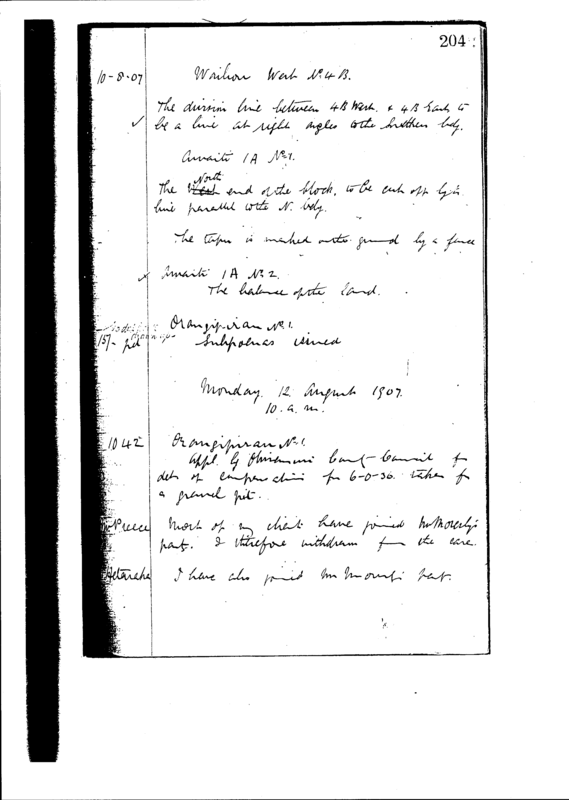 204
10-8-07 Waihou West No 4 B.
The division line between 4B West & 4B East to
be a line at right angles to the southern bdy.
Awaiti 1A No 1.
North
The West end of the block, to be cut off by a
line parallel to the N. bdy.
The is marked on the ground by a fence
Awaiti 1A No 2.
The balance of the land.
Orangipirau No 1.
15/- pd Subpoenas issued
Monday, 12 August 1907.
10. a. m.
1042 Orangipirau No 1.
Appl. of Ohinemuri County Council for
det. of compensation for 6-0-36 taken for
a gravel pit.
Preece Most of my clients have joined Mr
party. I therefore withdraw from the case.
I have also joined Mr party.